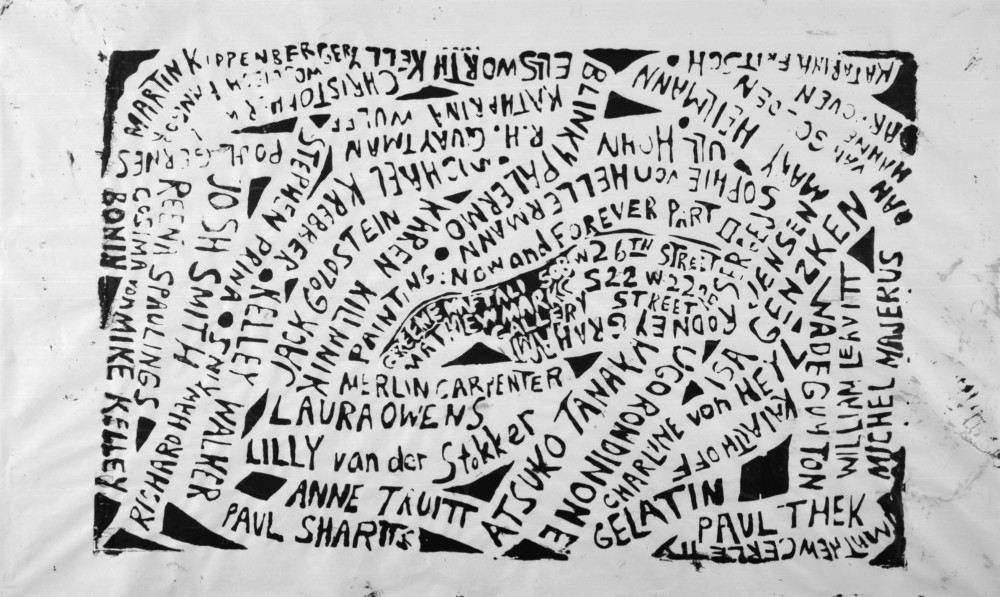 MARTIN KIPPENBERGER
ELLSWORTH KELLY
BLINKY PALERMO
KATARINA FRITSCH
CHRISTOPHER
KATHARINA WULFF
R.H. QUAYTMAN
MICHAEL KREBBER
HEILMANN
MARY
ULI HOHN
SOPHIE von HELLERMANN
POUL GERNES
STEPHEN PRINA
JOSH SMITH
REENA SPAULINGS
COSIMA von BONIN
MIKE KELLEY
KELLEY WALKER
RICHARD HAWKINS
JACK GOLDSTEIN
KAREN KILIMNIK
PAINTING: NOW and FOREVER PART
GREENE NAFTALI
508 W 26TH STREET
MATTHEW MARKS
GALLERY
522 W 22ND
STREET
RODNEY GRAHAM
SERGEJ JENSEN
ISA GENZKEN
WADE GUYTON
WILLIAM LEAVITT
MICHEL MAJERUS
MERLIN CARPENTER
LAURA OWENS
LILLY van der Stokker
ANNE TRUITT
PAUL SHARITS
ATSUKO TANAKA
UGO RONDINONE
CHARLINE von HEYL
KALTHOFF
GELATIN
PAUL THEK